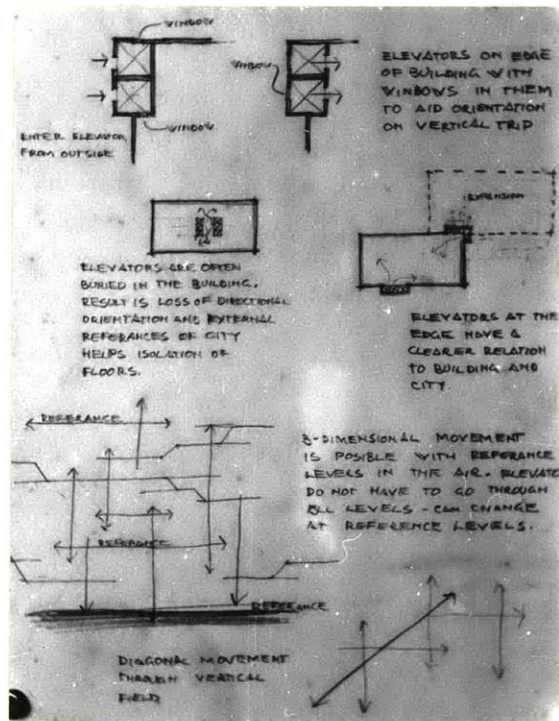 WINDOW
WINDOW
ENTER ELEVATOR
FROM OUTSIDE
WINDOW
ELEVATORS ON EDGE
OF BUILDING WITH
WINDOWS IN THEM
TO AID ORIENTATION
ON VERTICAL TRIP
ELEVATORS ARE OFTEN
BURIED IN THE BUILDING.
RESULT IS LOSS OF DIRECTIONAL
ORIENTATION AND EXTERNAL
REFERANCES OF CITY
HELPS ISOLATION OF
FLOORS.
EXPANSION
ELEVATORS AT THE
EDGE HAVE A
CLEARER RELATION
TO BUILDING AND
CITY.
REFERANCE
REFERANCE
REFERANCE
3-DIMENSIONAL MOVEMENT
IS POSIBLE WITH REFERANCE
LEVELS IN THE AIR. ELEVATO
DO NOT HAVE TO GO THROUGH
ALL LEVELS - CAN CHANGE
AT REFERENCE LEVELS.
DIAGONAL MOVEMENT
THROUGH VERTICAL
FIELD